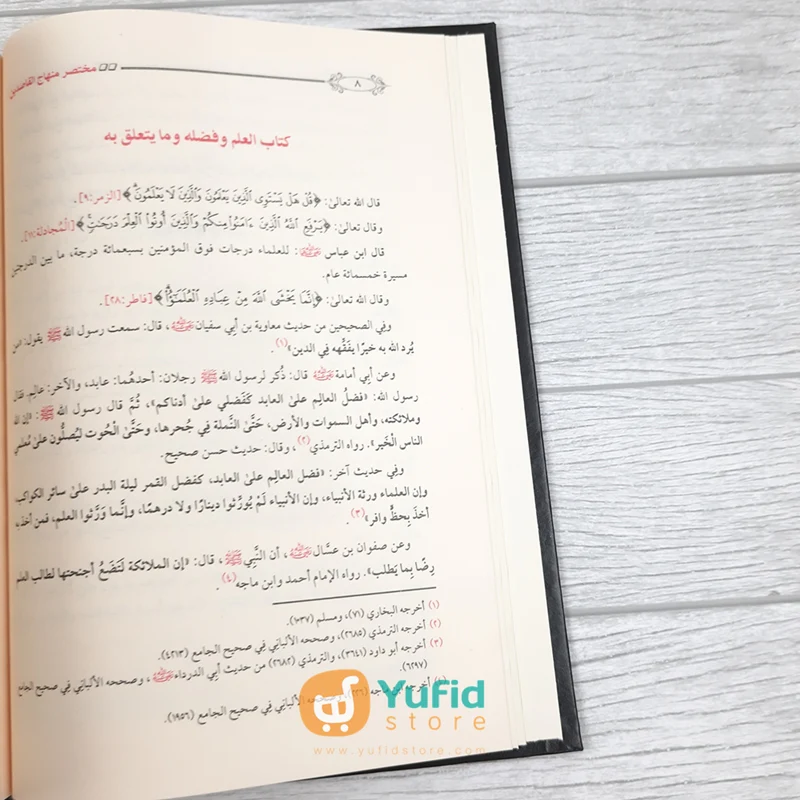 مختصر منهاج القاصدين
٨
كتاب العلم وفضله وما يتعلق به
قال الله تعالى: ﴿قُلْ هَلْ يَسْتَوِي الَّذِينَ يَعْلَمُونَ وَالَّذِينَ لَا يَعْلَمُونَ﴾ [الزمر: ٩].
وقال تعالى: ﴿يَرْفَعِ اللَّهُ الَّذِينَ ءَامَنُوا مِنكُمْ وَالَّذِينَ أُوتُوا الْعِلْمَ دَرَجَاتٍ﴾ [المُجادلة: ١١].
قال ابن عباس رضي الله عنهما: للعلماء درجات فوق المؤمنين بسبعمائة درجة، ما بين الدرجتين
مسيرة خمسمائة عام.
وقال الله تعالى: ﴿إِنَّمَا يَخْشَى اللَّهَ مِنْ عِبَادِهِ الْعُلَمَاءُ﴾ [فاطر: ٢٨].
وفي الصحيحين من حديث معاوية بن أبي سفيان رضي الله عنه، قال: سمعت رسول الله ﷺ يقول: «من
يُرد الله به خيرًا يفَقِّهه في الدين»(١).
وعن أبي أمامة رضي الله عنه قال: ذُكر لرسول الله ﷺ رجلان: أحدهُما: عابد، والآخر: عالِم. فقال
رسول الله: «فضلُ العالِم على العابد كَفَضلي على أدناكم»، ثُمَّ قال رسول الله ﷺ: «إن الله
وملائكته، وأهل السموات والأرض، حَتَّى النَّملة في جُحرها، وحَتَّى الْحُوت ليُصلُّون على مُعلمي
الناس الْخَير». رواه الترمذي(٢)، وقال: حديث حسن صحيح.
وفي حديث آخر: «فضل العالِم على العابد، كفضل القمر ليلة البدر على سائر الكواكب،
وإن العلماء ورثة الأنبياء، وإن الأنبياء لَمْ يُورِّثوا دينارًا ولا درهمًا، وإنَّما وَرَّثوا العلم، فمن أخذه
أخذ بِحظٍّ وافر»(٣).
وعن صفوان بن عسَّال رضي الله عنه، أن النَّبِي ﷺ، قال: «إن الملائكة لَتَضَعُ أجنحتها لطالب العلم
رِضًا بِما يَطلب». رواه الإمام أحمد وابن ماجه(٤).
(١) أخرجه البخاري (٧١)، ومسلم (١٠٣٧).
(٢) أخرجه الترمذي (٢٦٨٥)، وصححه الألباني في صحيح الجامع (٤٢١٣).
(٣) أخرجه أبو داود (٣٦٤١)، والترمذي (٢٦٨٢) من حديث أبي الدرداء رضي الله عنه، وصححه الألباني في صحيح الجامع
(٦٢٩٧).
(٤) أخرجه ابن ماجه (٢٢٦)، وصححه الألباني في صحيح الجامع (١٩٥٦).
Yufid
store
www.yufidstore.com